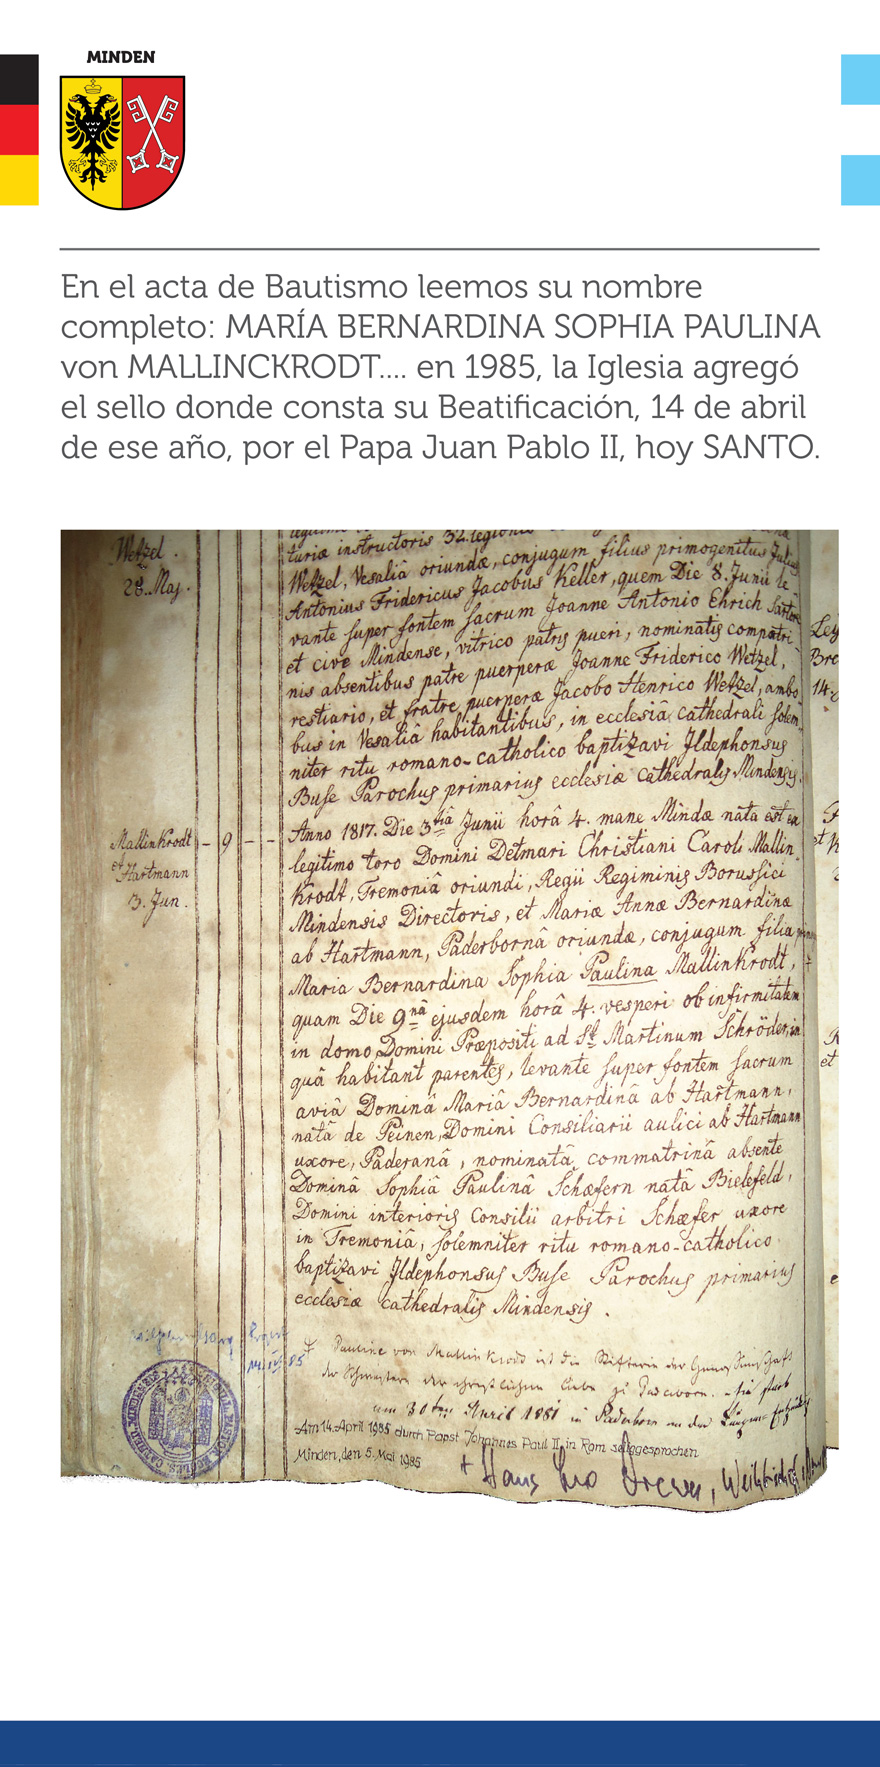 MINDEN
En el acta de Bautismo leemos su nombre
completo: MARÍA BERNARDINA SOPHIA PAULINA
von MALLINCKRODT.... en 1985, la Iglesia agregó
el sello donde consta su Beatificación, 14 de abril
de ese año, por el Papa Juan Pablo II, hoy SANTO.
Wetzel.
28. Maj.
turiæ instructoris 32. legionis
Wetzel, Vesaliâ oriundæ, conjugum filius primogenitus Julius
Antonius Fridericus Jacobus Keller, quem Die 8. Junii le-
vante super fontem sacrum Joanne Antonio Ehrich Sartore
et cive Mindense, vitrico patris pueri, nominatis compatri-
nis absentibus patre puerperæ Joanne Friderico Wetzel,
restiario, et fratre puerperæ Jacobo Henrico Wetzel, ambo-
bus in Vesaliâ habitantibus, in ecclesiâ cathedrali solem-
niter ritu romano-catholico baptizavi Ildephonsus
Buse Parochus primarius ecclesiæ cathedralis Mindensis.
Mallinkrodt
et
Hartmann
3. Jun.
- 9 - -
Anno 1817. Die 3tiâ Junii horâ 4. mane Mindæ nata est ex
legitimo toro Domini Detmari Christiani Caroli Mallin-
krodt, Tremoniâ oriundi, Regii Regiminis Borussici
Mindensis Directoris, et Mariæ Annæ Bernardinæ
ab Hartmann, Paderbornâ oriundæ, conjugum filia
Maria Bernardina Sophia Paulina Mallinkrodt,
quam Die 9nâ ejusdem horâ 4. vesperi ob infirmitatem
in domo Domini Præpositi ad St Martinum Schröder, in
quâ habitant parentes, levante super fontem sacrum
aviâ Dominâ Mariâ Bernardinâ ab Hartmann,
natâ de Peinen, Domini Consiliarii aulici ab Hartmann
uxore, Paderanâ, nominatâ commatrinâ absente
Dominâ Sophiâ Paulinâ Schæfern natâ Bielefeld,
Domini interioris Consilii arbitri Schæfer uxore
in Tremoniâ, solemniter ritu romano-catholico
baptizavi Ildephonsus Buse Parochus primarius
ecclesiæ cathedralis Mindensis.
Pauline von Mallinkrodt ist die Stifterin der Genossenschaft
der Schwestern der christlichen Liebe zu Paderborn. - Sie starb
am 30ten April 1881 in Paderborn an der
Am 14. April 1985 durch Papst Johannes Paul II. in Rom seliggesprochen
Minden, den 5. Mai 1985
+ Hans Leo Drewes, Weihbischof